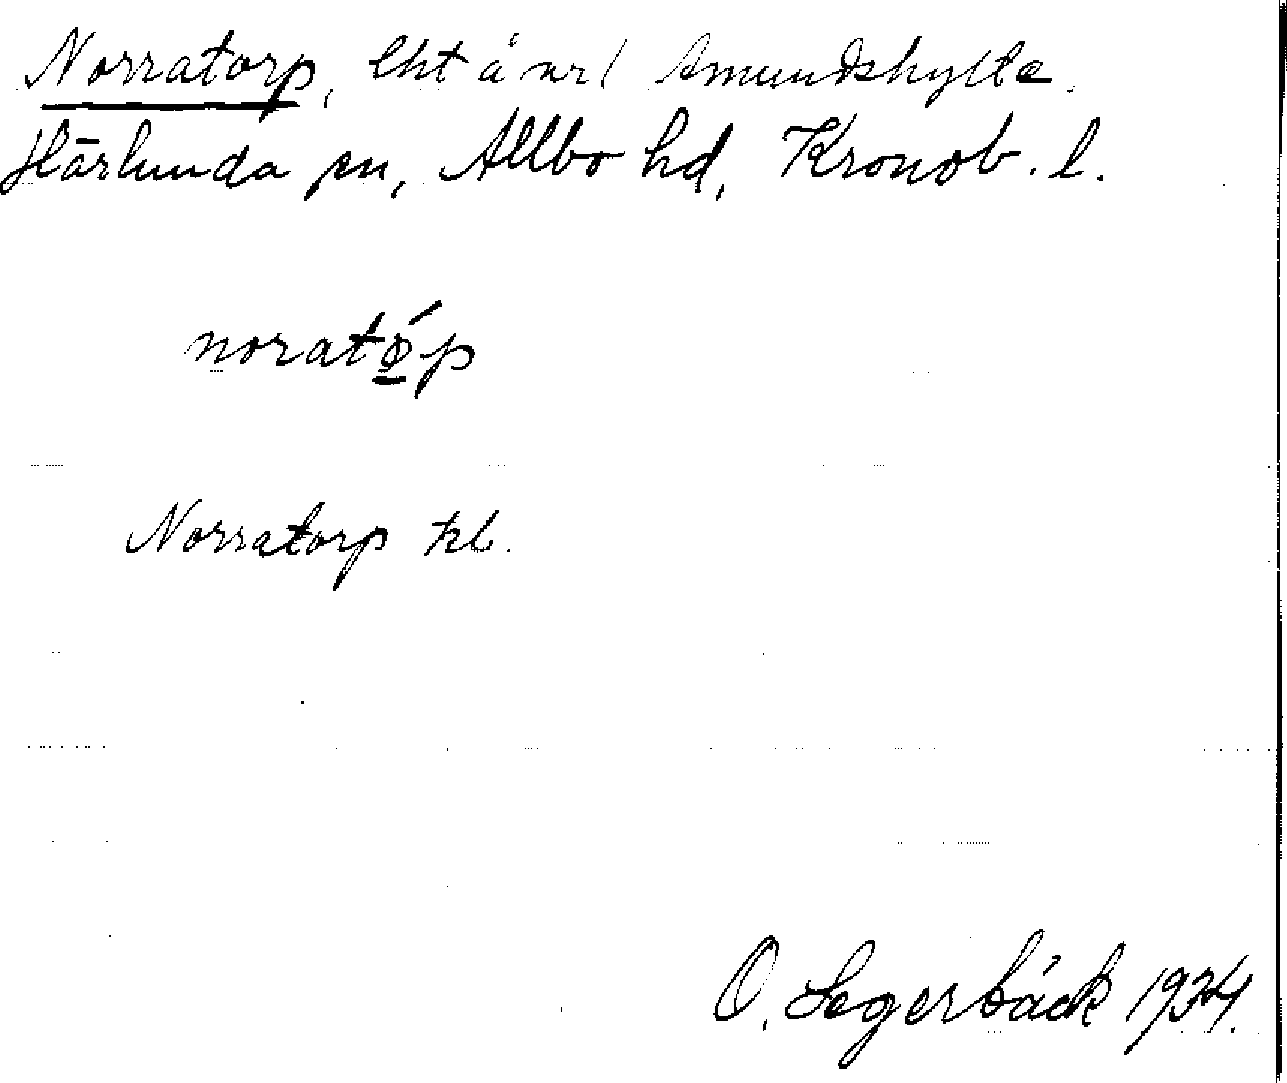 Norratorp, lht å nr 1 Amundshylte.
Härlunda sn, Allbo hd, Kronob. l.
noratǿp
Norratorp kb.
O. Segerbäck 1934.